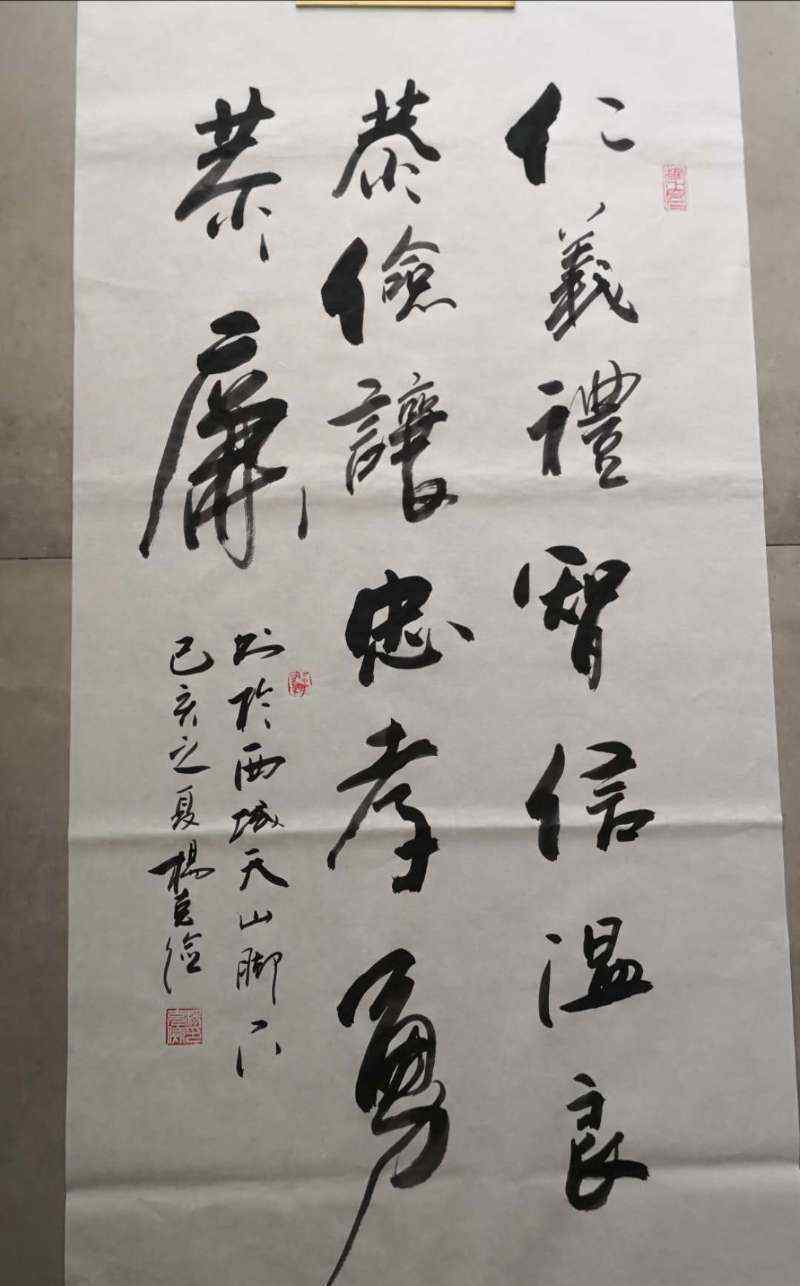 仁義禮智信温良
恭儉讓忠孝勇
恭廉
於西域天山脚下
己亥之夏楊克儉